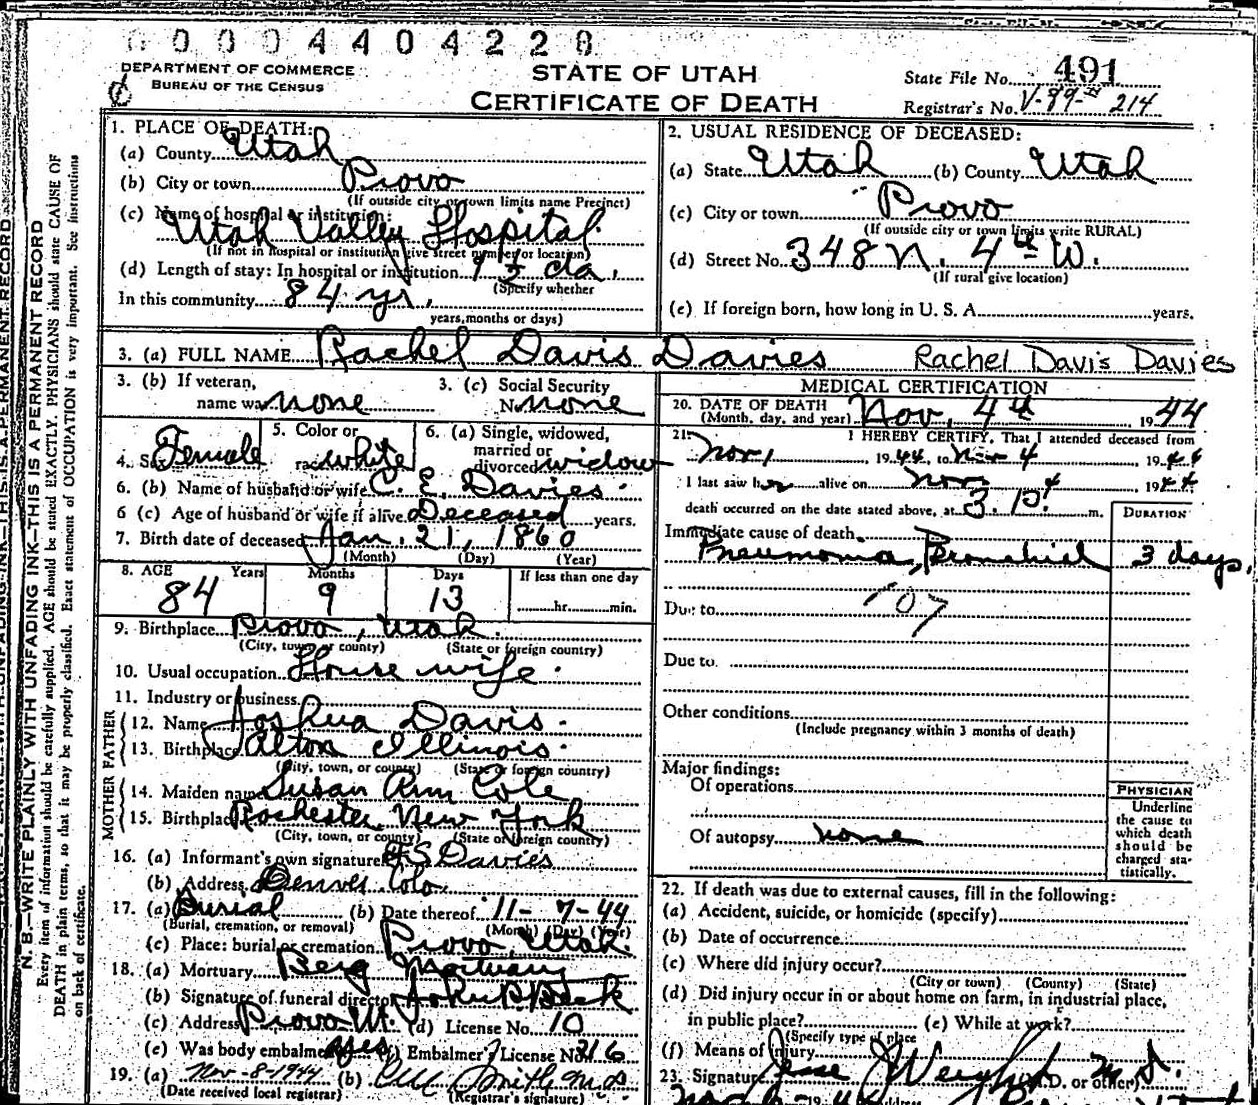 0 0 0 0 4 4 0 4 2 2 8
DEPARTMENT OF COMMERCE
BUREAU OF THE CENSUS
STATE OF UTAH
CERTIFICATE OF DEATH
State File No. 491
Registrar's No. V-89- 214
N. B.—WRITE PLAINLY WITH UNFADING INK—THIS IS A PERMANENT RECORD
Every item of information should be carefully supplied. AGE should be stated EXACTLY. PHYSICIANS should state CAUSE OF
DEATH in plain terms, so that it may be properly classified. Exact statement of OCCUPATION is very important. See instructions
on back of certificate.
1. PLACE OF DEATH:
(a) County Utah
(b) City or town Provo
(If outside city or town limits name Precinct)
(c) Name of hospital or institution:
Utah Valley Hospital
(If not in hospital or institution give street number or location)
(d) Length of stay: In hospital or institution da.
(Specify whether
In this community 84 yr.
years, months or days)
2. USUAL RESIDENCE OF DECEASED:
(a) State Utah (b) County Utah
(c) City or town Provo
(If outside city or town limits write RURAL)
(d) Street No. 348 N. 4th W.
(If rural give location)
(e) If foreign born, how long in U. S. A. years.
3. (a) FULL NAME Rachel Davis Davies Rachel Davis Davies
3. (b) If veteran,
name wa none
3. (c) Social Security
No none
4. Sex Female
5. Color or
race white
6. (a) Single, widowed,
married or
divorced widow
6. (b) Name of husband or wife C. E. Davies
6 (c) Age of husband or wife if alive Deceased years.
7. Birth date of deceased Jan. 21, 1860
(Month) (Day) (Year)
8. AGE Years Months Days If less than one day
84 9 13 hr. min.
9. Birthplace Provo, Utah.
(City, town or county) (State or foreign country)
10. Usual occupation House wife
11. Industry or business
FATHER
12. Name Joshua Davis
13. Birthplace Alton Illinois
(City, town, or county) (State or foreign country)
MOTHER
14. Maiden name Susan Ann Cole
15. Birthplace Rochester New York
(City, town, or county) (State or foreign country)
16. (a) Informant's own signature Davies
(b) Address Denver Colo
17. (a) Burial (b) Date thereof 11-7-44
(Burial, cremation, or removal) (Month) (Day) (Year)
(c) Place: burial or cremation Provo Utah.
18. (a) Mortuary Berg Mortuary
(b) Signature of funeral director
(c) Address Provo Ut. (d) License No. 10
(e) Was body embalmed yes (f) Embalmer's License No. 216
19. (a) Nov-8-1944 (b) Smith
(Date received local registrar) (Registrar's signature)
MEDICAL CERTIFICATION
20. DATE OF DEATH
(Month, day, and year) Nov. 4th 1944
21. I HEREBY CERTIFY, That I attended deceased from
Nov 1, 1944, to Nov 4, 1944
I last saw her alive on Nov 4 1944
death occurred on the date stated above, at m.
DURATION
Immediate cause of death
Pneumonia, Bronchial 3 days.
Due to 107
Due to
Other conditions
(Include pregnancy within 3 months of death)
Major findings:
Of operations
Of autopsy none
PHYSICIAN
Underline
the cause to
which death
should be
charged sta-
tistically.
22. If death was due to external causes, fill in the following:
(a) Accident, suicide, or homicide (specify)
(b) Date of occurrence
(c) Where did injury occur?
(City or town) (County) (State)
(d) Did injury occur in or about home on farm, in industrial place,
in public place? (e) While at work?
(Specify type of place
(f) Means of Injury
23. Signature Jesse J Weight M.D. or other)